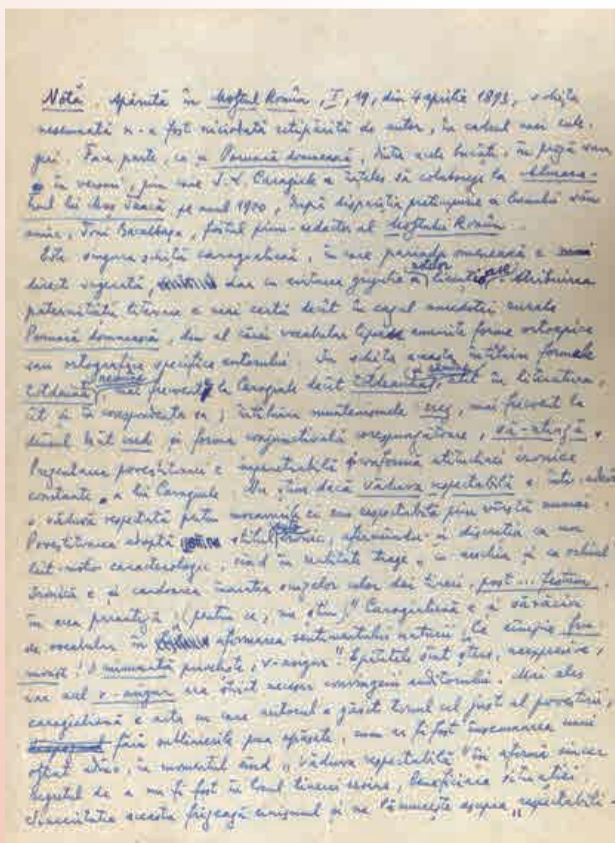 Notă. Apărută în Moftul Român, I, 19, din 4 aprilie 1893, schița
nesemnată n-a fost niciodată retipărită de autor, în cadrul unei cule-
geri. Face parte, ca și Pomană domnească, dintre acele bucăți, în proză sau
în versuri, prin care I. L. Caragiale a înțeles să colaboreze la Almana-
hul lui Moș Teacă pe anul 1900, după dispariția prematură a
Toni Bacalbașa, fostul prim-redactor al Moftului Român.
Este singura schiță caragialiană, în care
direct sugerată, dar cu evitarea grijulie a Atribuirea
paternității literare e mai certă decât în cazul anecdotei murale
Pomană domnească, din al cărei vocabular lipsesc anumite forme ortoepice
sau ortografice specifice autorului. In schița aceasta întîlnim formele
totdeuna, mai frecvent la Caragiale decît totdeauna, atît în literatura,
cît și în corespondența sa; întîlnim muntenismele crez, mai frecvent la
dînsul decît cred și forma conjunctivală corespunzătoare, să-atingă.
Prezentarea povestitoarei e inimitabilă și conformă atitudinei ironice
constante a lui Caragiale. Nu știm dacă văduva respectabilă e într-adevăr
o văduvă respectată pentru moravurile ei sau respectabilă prin vîrstă numai.
Povestitoarea adoptă stilul ironic, afirmîndu-și discreția ca un
leit-motiv caracterologic, cînd în realitate trage cu urechia și cu ochiul.
Ironică e și candoarea înaintea celor doi tineri, post... festum,
în acea paranteză „(pentru ce, nu știu)”. Caragialiană e și sărăcia
de vocabular în afirmarea sentimentului naturii: „Ce cîmpie fru-
moasă! O minunată priveliște, v-asigur”. Epitetele sînt șterse, neexpresive,
iar acel v-asigur era strict necesar convingerii auditorului. Mai ales
caragialiană e arta cu care autorul a găsit tonul cel just al povestirii,
fără sublinierile prea apăsate, cum ar fi fost însemnarea unui
oftat adînc, în momentul cînd „văduva respectabilă” își afirmă sincer
regretul de a nu fi fost în locul tinerei serviere, beneficiara situației.
Sinceritatea aceasta frizează cinismul și ne lămurește asupra „respectabili-